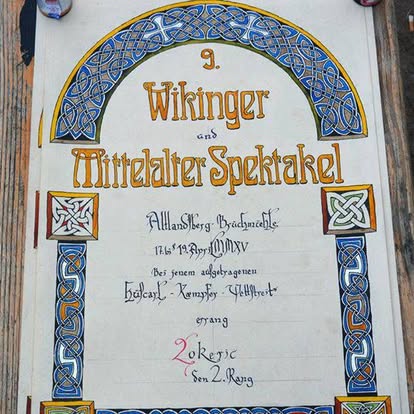 9.
Wikinger
und
Mittelalter Spektakel
Altlandsberg-Bruchmühle
17. bis 19. April MMXV
Bei jenem aufgetragenen
Huscarl - Kaempfer - Wettstreit
errang
den 2. Rang